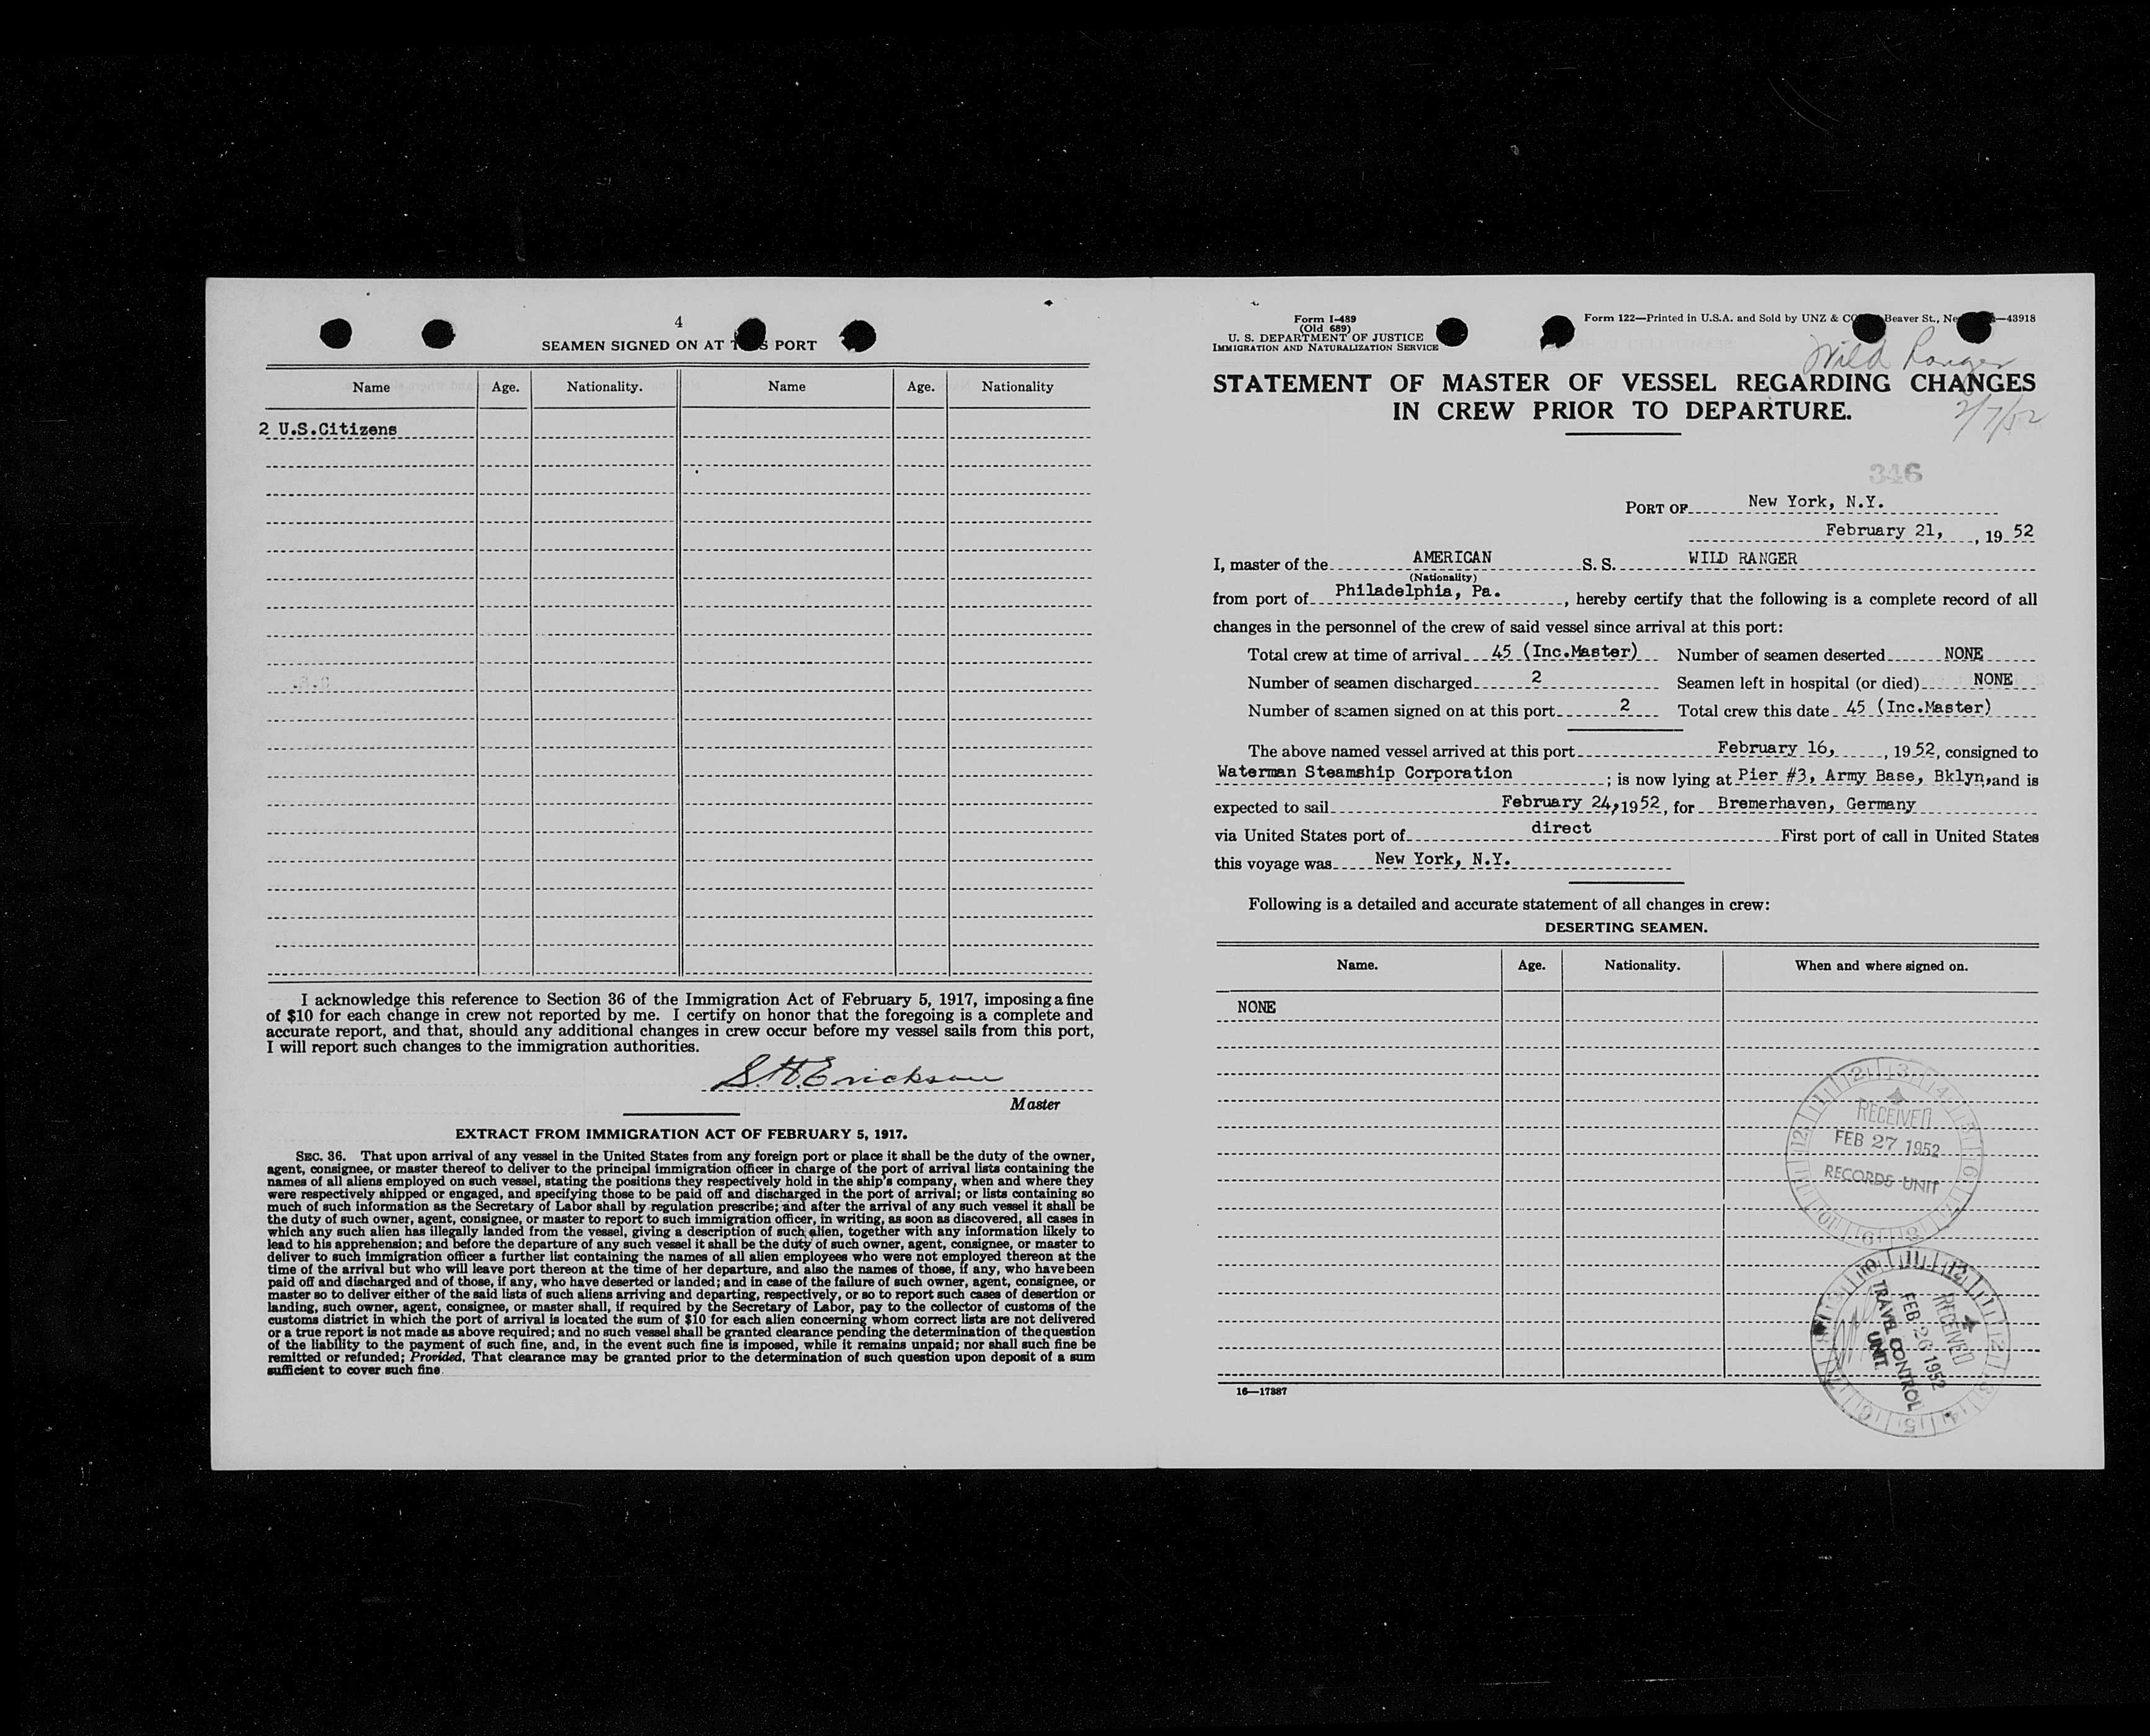 4
SEAMEN SIGNED ON AT PORT
Name Age. Nationality. Name Age. Nationality
2 U.S.Citizens
I acknowledge this reference to Section 36 of the Immigration Act of February 5, 1917, imposing a fine
of $10 for each change in crew not reported by me. I certify on honor that the foregoing is a complete and
accurate report, and that, should any additional changes in crew occur before my vessel sails from this port,
I will report such changes to the immigration authorities.
S.H.Erickson
Master
EXTRACT FROM IMMIGRATION ACT OF FEBRUARY 5, 1917.
SEC. 36. That upon arrival of any vessel in the United States from any foreign port or place it shall be the duty of the owner,
agent, consignee, or master thereof to deliver to the principal immigration officer in charge of the port of arrival lists containing the
names of all aliens employed on such vessel, stating the positions they respectively hold in the ship's company, when and where they
were respectively shipped or engaged, and specifying those to be paid off and discharged in the port of arrival; or lists containing so
much of such information as the Secretary of Labor shall by regulation prescribe; and after the arrival of any such vessel it shall be
the duty of such owner, agent, consignee, or master to report to such immigration officer, in writing, as soon as discovered, all cases in
which any such alien has illegally landed from the vessel, giving a description of such alien, together with any information likely to
lead to his apprehension; and before the departure of any such vessel it shall be the duty of such owner, agent, consignee, or master to
deliver to such immigration officer a further list containing the names of all alien employees who were not employed thereon at the
time of the arrival but who will leave port thereon at the time of her departure, and also the names of those, if any, who have been
paid off and discharged and of those, if any, who have deserted or landed; and in case of the failure of such owner, agent, consignee, or
master so to deliver either of the said lists of such aliens arriving and departing, respectively, or so to report such cases of desertion or
landing, such owner, agent, consignee, or master shall, if required by the Secretary of Labor, pay to the collector of customs of the
customs district in which the port of arrival is located the sum of $10 for each alien concerning whom correct lists are not delivered
or a true report is not made as above required; and no such vessel shall be granted clearance pending the determination of the question
of the liability to the payment of such fine, and, in the event such fine is imposed, while it remains unpaid; nor shall such fine be
remitted or refunded; Provided, That clearance may be granted prior to the determination of such question upon deposit of a sum
sufficient to cover such fine
Form I-489
(Old 689)
U. S. DEPARTMENT OF JUSTICE
IMMIGRATION AND NATURALIZATION SERVICE
Form 122—Printed in U.S.A. and Sold by UNZ & Beaver St., —43918
Wild Ranger
STATEMENT OF MASTER OF VESSEL REGARDING CHANGES
IN CREW PRIOR TO DEPARTURE.
2/7/52
346
PORT OF New York, N.Y.
February 21, , 19 52
I, master of the AMERICAN S. S. WILD RANGER
(Nationality)
from port of Philadelphia, Pa. , hereby certify that the following is a complete record of all
changes in the personnel of the crew of said vessel since arrival at this port:
Total crew at time of arrival 45 (Inc.Master) Number of seamen deserted NONE
Number of seamen discharged 2 Seamen left in hospital (or died) NONE
Number of seamen signed on at this port 2 Total crew this date 45 (Inc.Master)
The above named vessel arrived at this port February 16, , 1952, consigned to
Waterman Steamship Corporation ; is now lying at Pier #3, Army Base, Bklyn, and is
expected to sail February 24, 1952, for Bremerhaven, Germany
via United States port of direct First port of call in United States
this voyage was New York, N.Y.
Following is a detailed and accurate statement of all changes in crew:
DESERTING SEAMEN.
Name. Age. Nationality. When and where signed on.
NONE
RECEIVED
FEB 27 1952
RECORDS UNIT
RECEIVED
FEB 26 1952
TRAVEL CONTROL
UNIT
16—17387